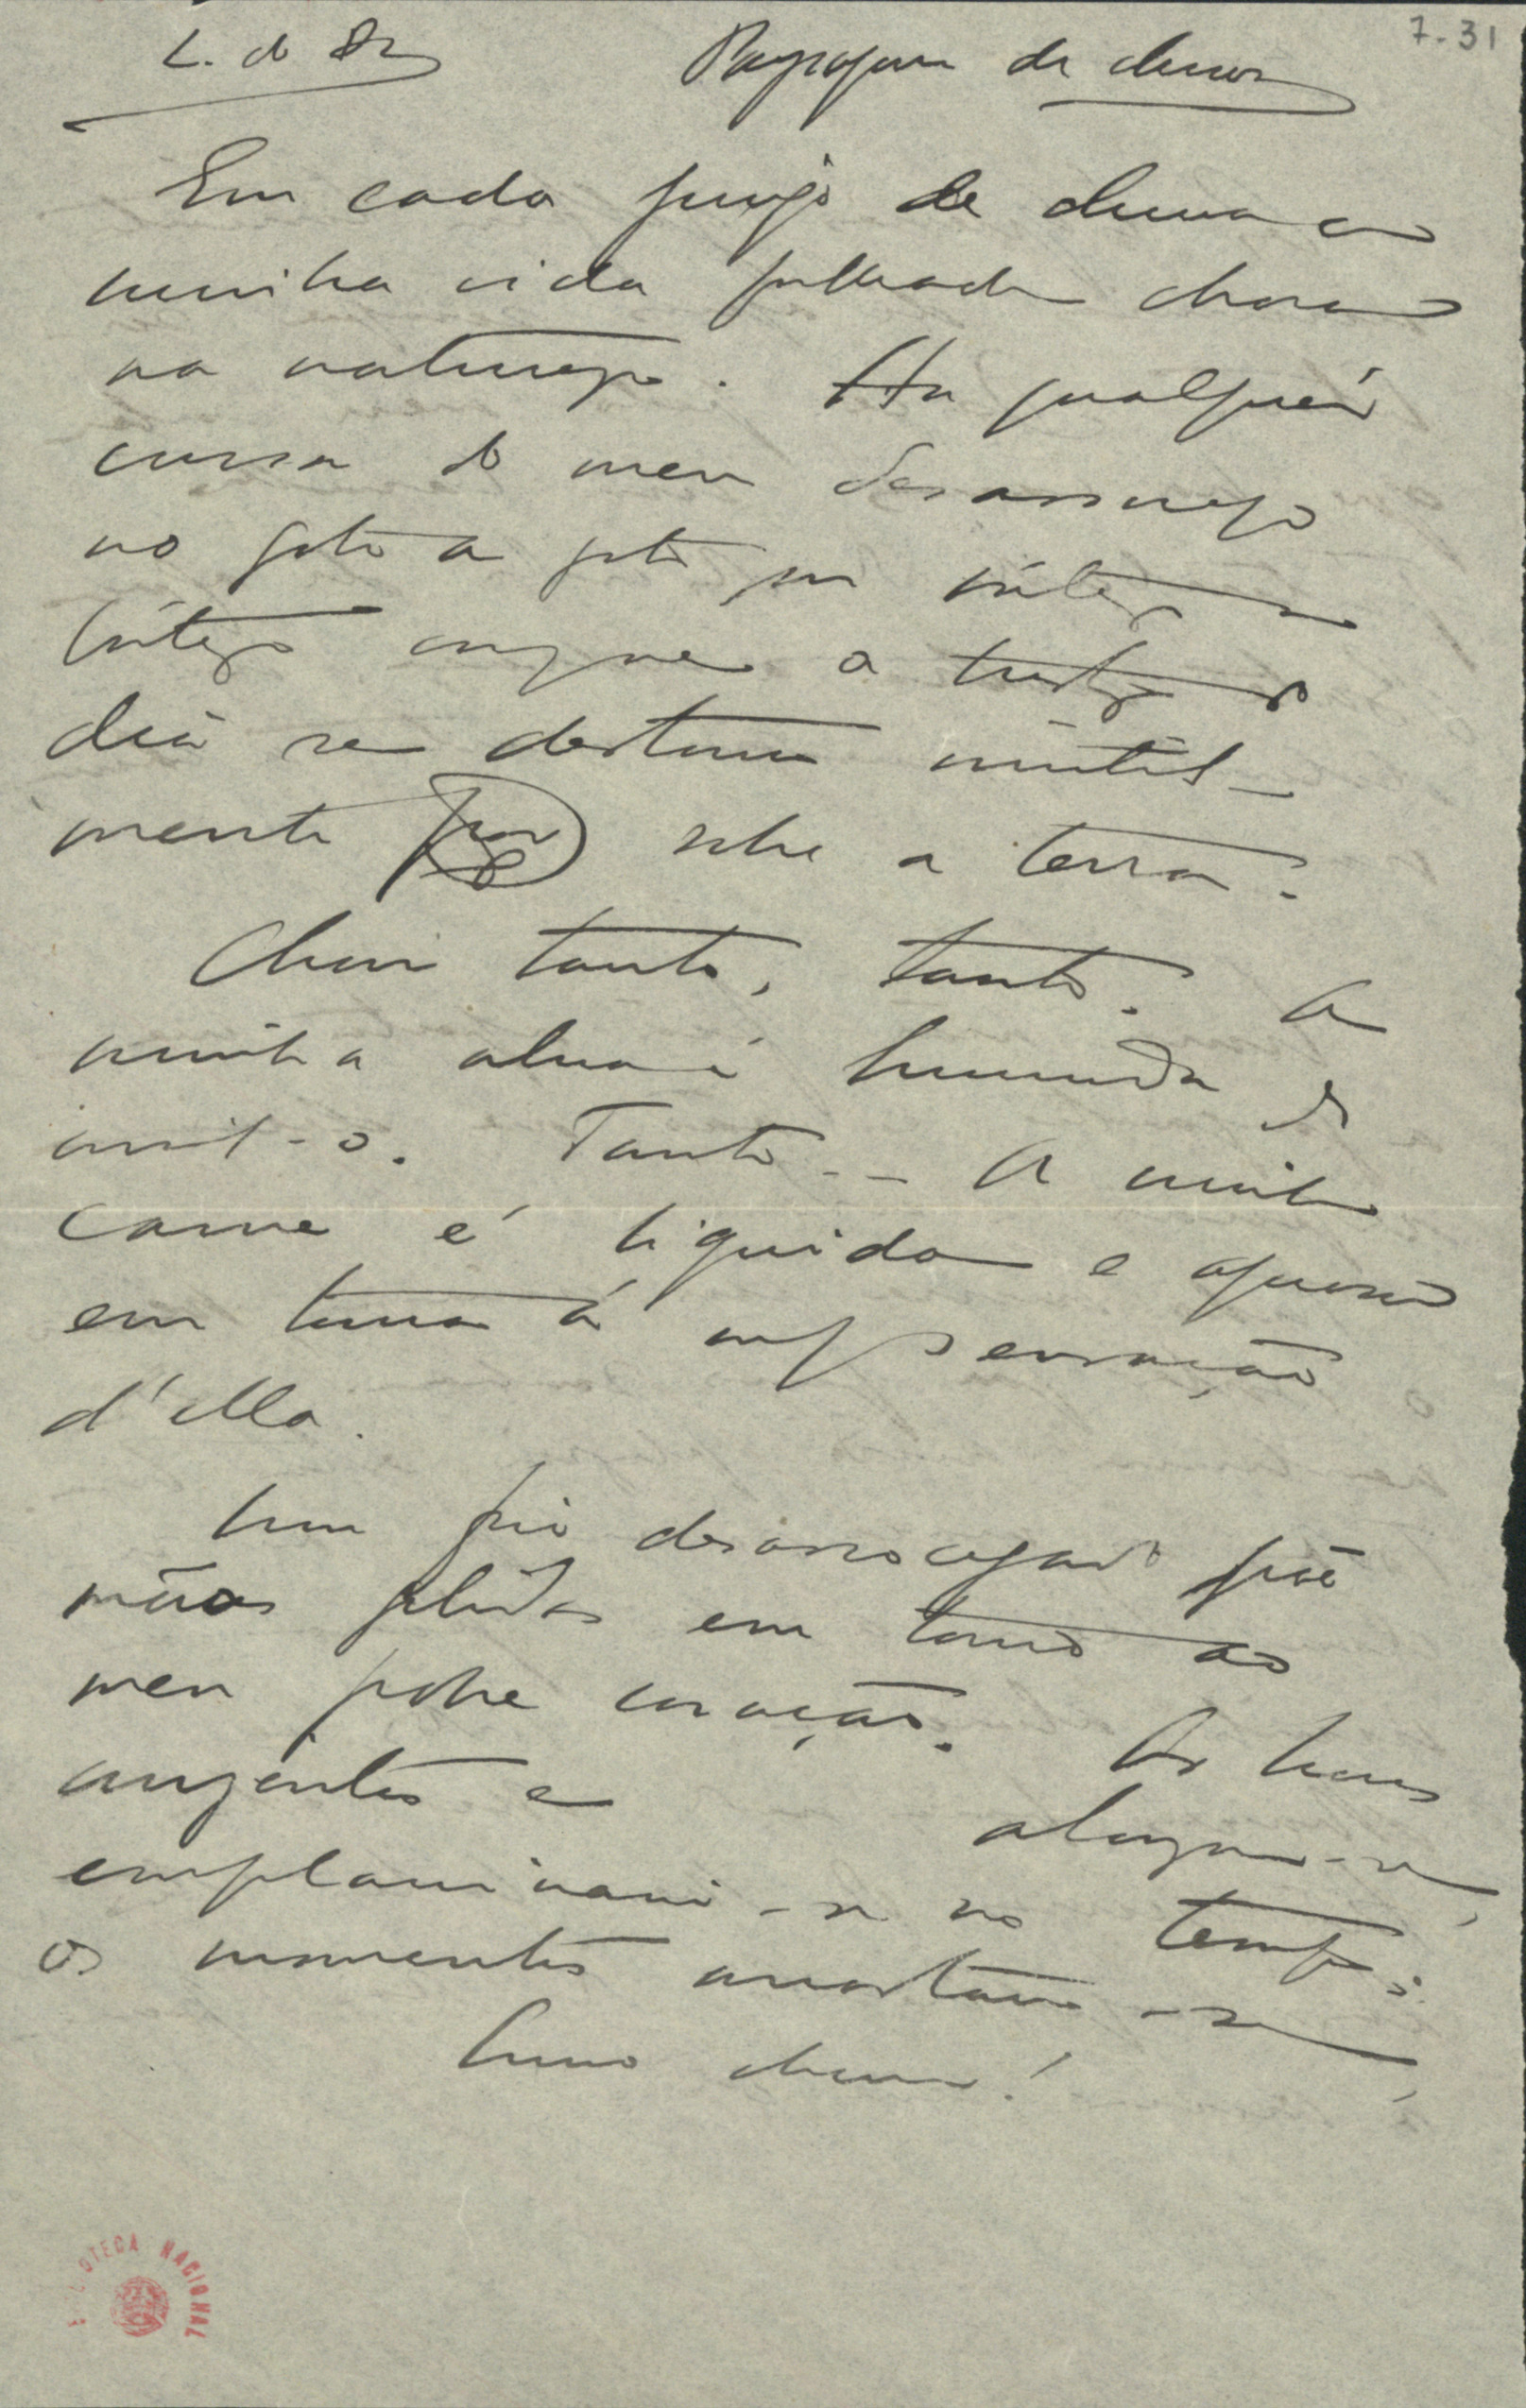 L. do D.
Paysagem de chuva
7-31
Em cada pingo de chuva a
minha vida falhada chora
na natureza. Ha qualquér
cousa do meu desassocego
no gota a gota, na
com que a tristeza do
dia se destorna inutil-
mente por sobre a terra.
Chove tanto, tanto. A
minha alma é humida de
ouvil-o. Tanto... A minha
carne é liquida e aquosa
em torno á m/ sensação
d'ella.
Um frio desassocegado põe
mãos gelidas em torno ao
meu pobre coração. As horas
cinzentas e alongam-se,
emplaniciam-se no tempo;
os momentos arrastam-se,
Como chove!
BIBLIOTECA NACIONAL